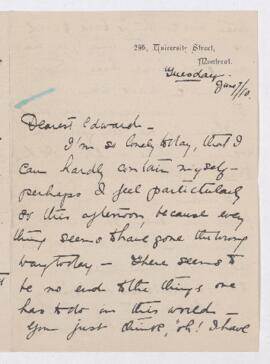 295, University Street,
Montreal.
Tuesday.
June 7/10.
Dearest Edward -
I'm so lonely today, that I
can hardly contain myself -
perhaps I feel particularly
so this afternoon, because every
thing seems to have gone the wrong
way today - There seems to
be no end to the things one
has to do in this world -
You just think, 'oh! I have